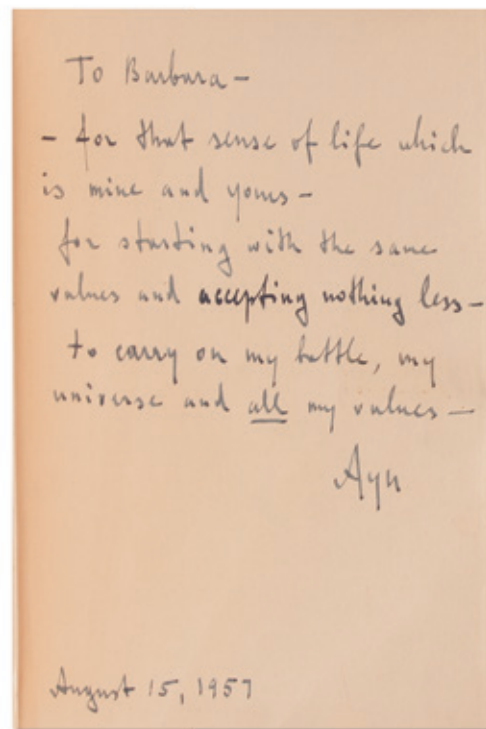 To Barbara —
- for that sense of life which
is mine and yours —
for starting with the same
values and accepting nothing less —
to carry on my battle, my
universe and all my values —
Ayn
August 15, 1957